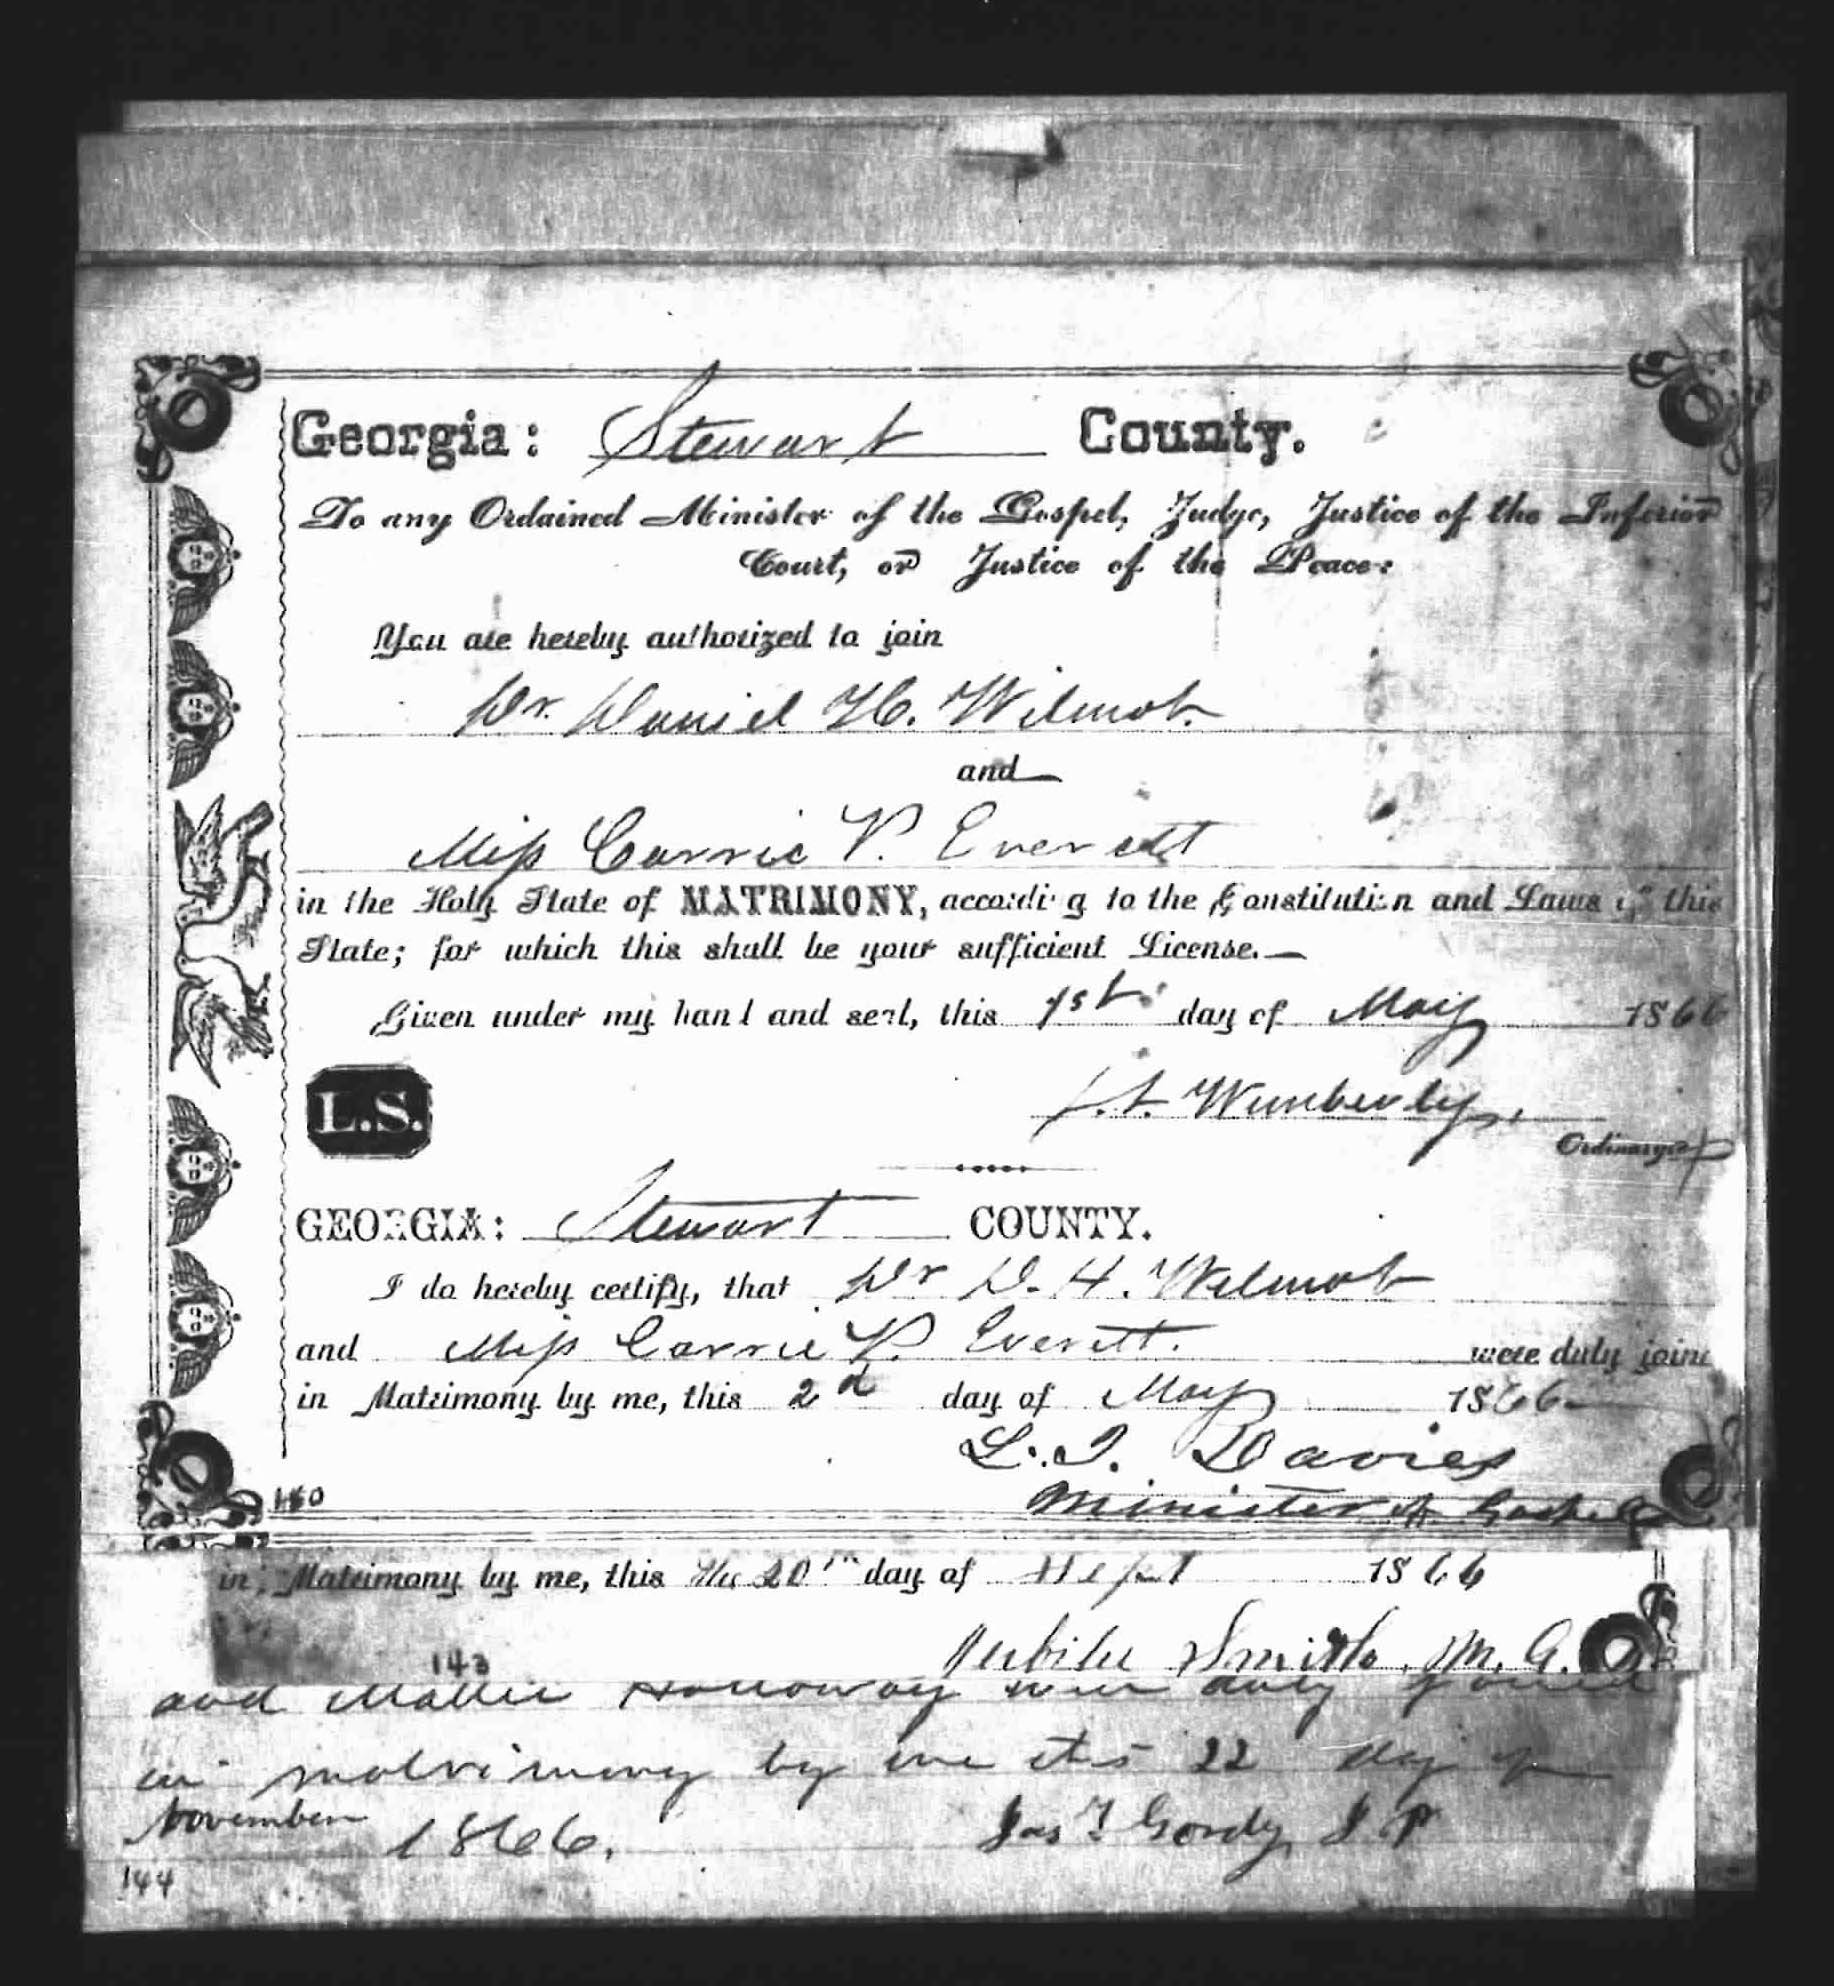 Georgia: Stewart County.
To any Ordained Minister of the Gospel, Judge, Justice of the Inferior
Court, or Justice of the Peace:
You are hereby authorized to join
Dr. Daniel H. Wilmot.
and
Miss Carrie V. Everett
in the Holy State of MATRIMONY, according to the Constitution and Laws of this
State; for which this shall be your sufficient License.—
Given under my hand and seal, this 1st day of May 1866
L.S.
Wimberly.
Ordinary
GEORGIA: Stewart COUNTY.
I do hereby certify, that Dr D. H. Wilmot
and Miss Carrie V. Everett. were duly joine
in Matrimony by me, this 2d day of May 1866
L. T. Davies
Minister of Gospel
140
in Matrimony by me, this the 20th day of Sept 1866
Smith. M. G.
143
and Mattie Holloway were duly joined
in matrimony by me this 22 day of
November 1866. Jas T Gordy J P
144